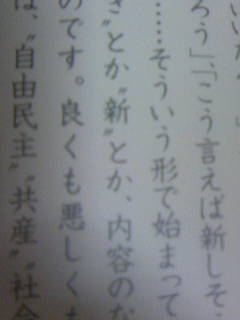 ろう」、「こう言えば新しそ
……そういう形で始まって
き〟とか〝新〟とか、内容のな
のです。良くも悪しくも
は、〝自由民主〟〝共産〟〝社会